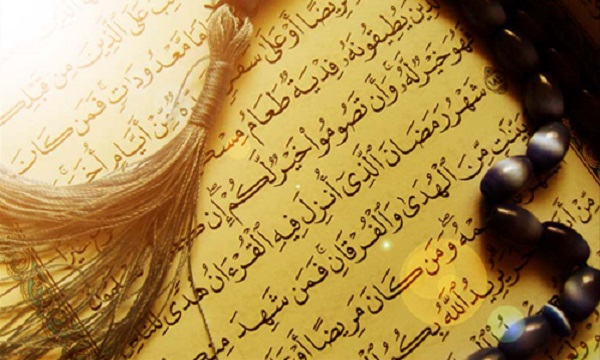 عَلَى ٱلَّذِينَ مِن
مَّعْدُودَاتٍ فَمَن كَانَ
مَّرِيضًا أَوْ عَلَىٰ سَفَرٍ مِّنْ أَيَّامٍ أُخَرَ
يُطِيقُونَهُۥ فِدْيَةٌ طَعَامُ
فَهُوَ خَيْرٌ لَّهُۥ وَأَن تَصُومُوا۟ خَيْرٌ لَّكُمْ إِن
شَهْرُ رَمَضَانَ ٱلَّذِىٓ أُنزِلَ فِيهِ ٱلْقُرْءَانُ هُدًى
مِّنَ ٱلْهُدَىٰ وَٱلْفُرْقَانِ فَمَن شَهِدَ
وَمَن كَانَ مَرِيضًا
يُرِيدُ ٱللَّهُ